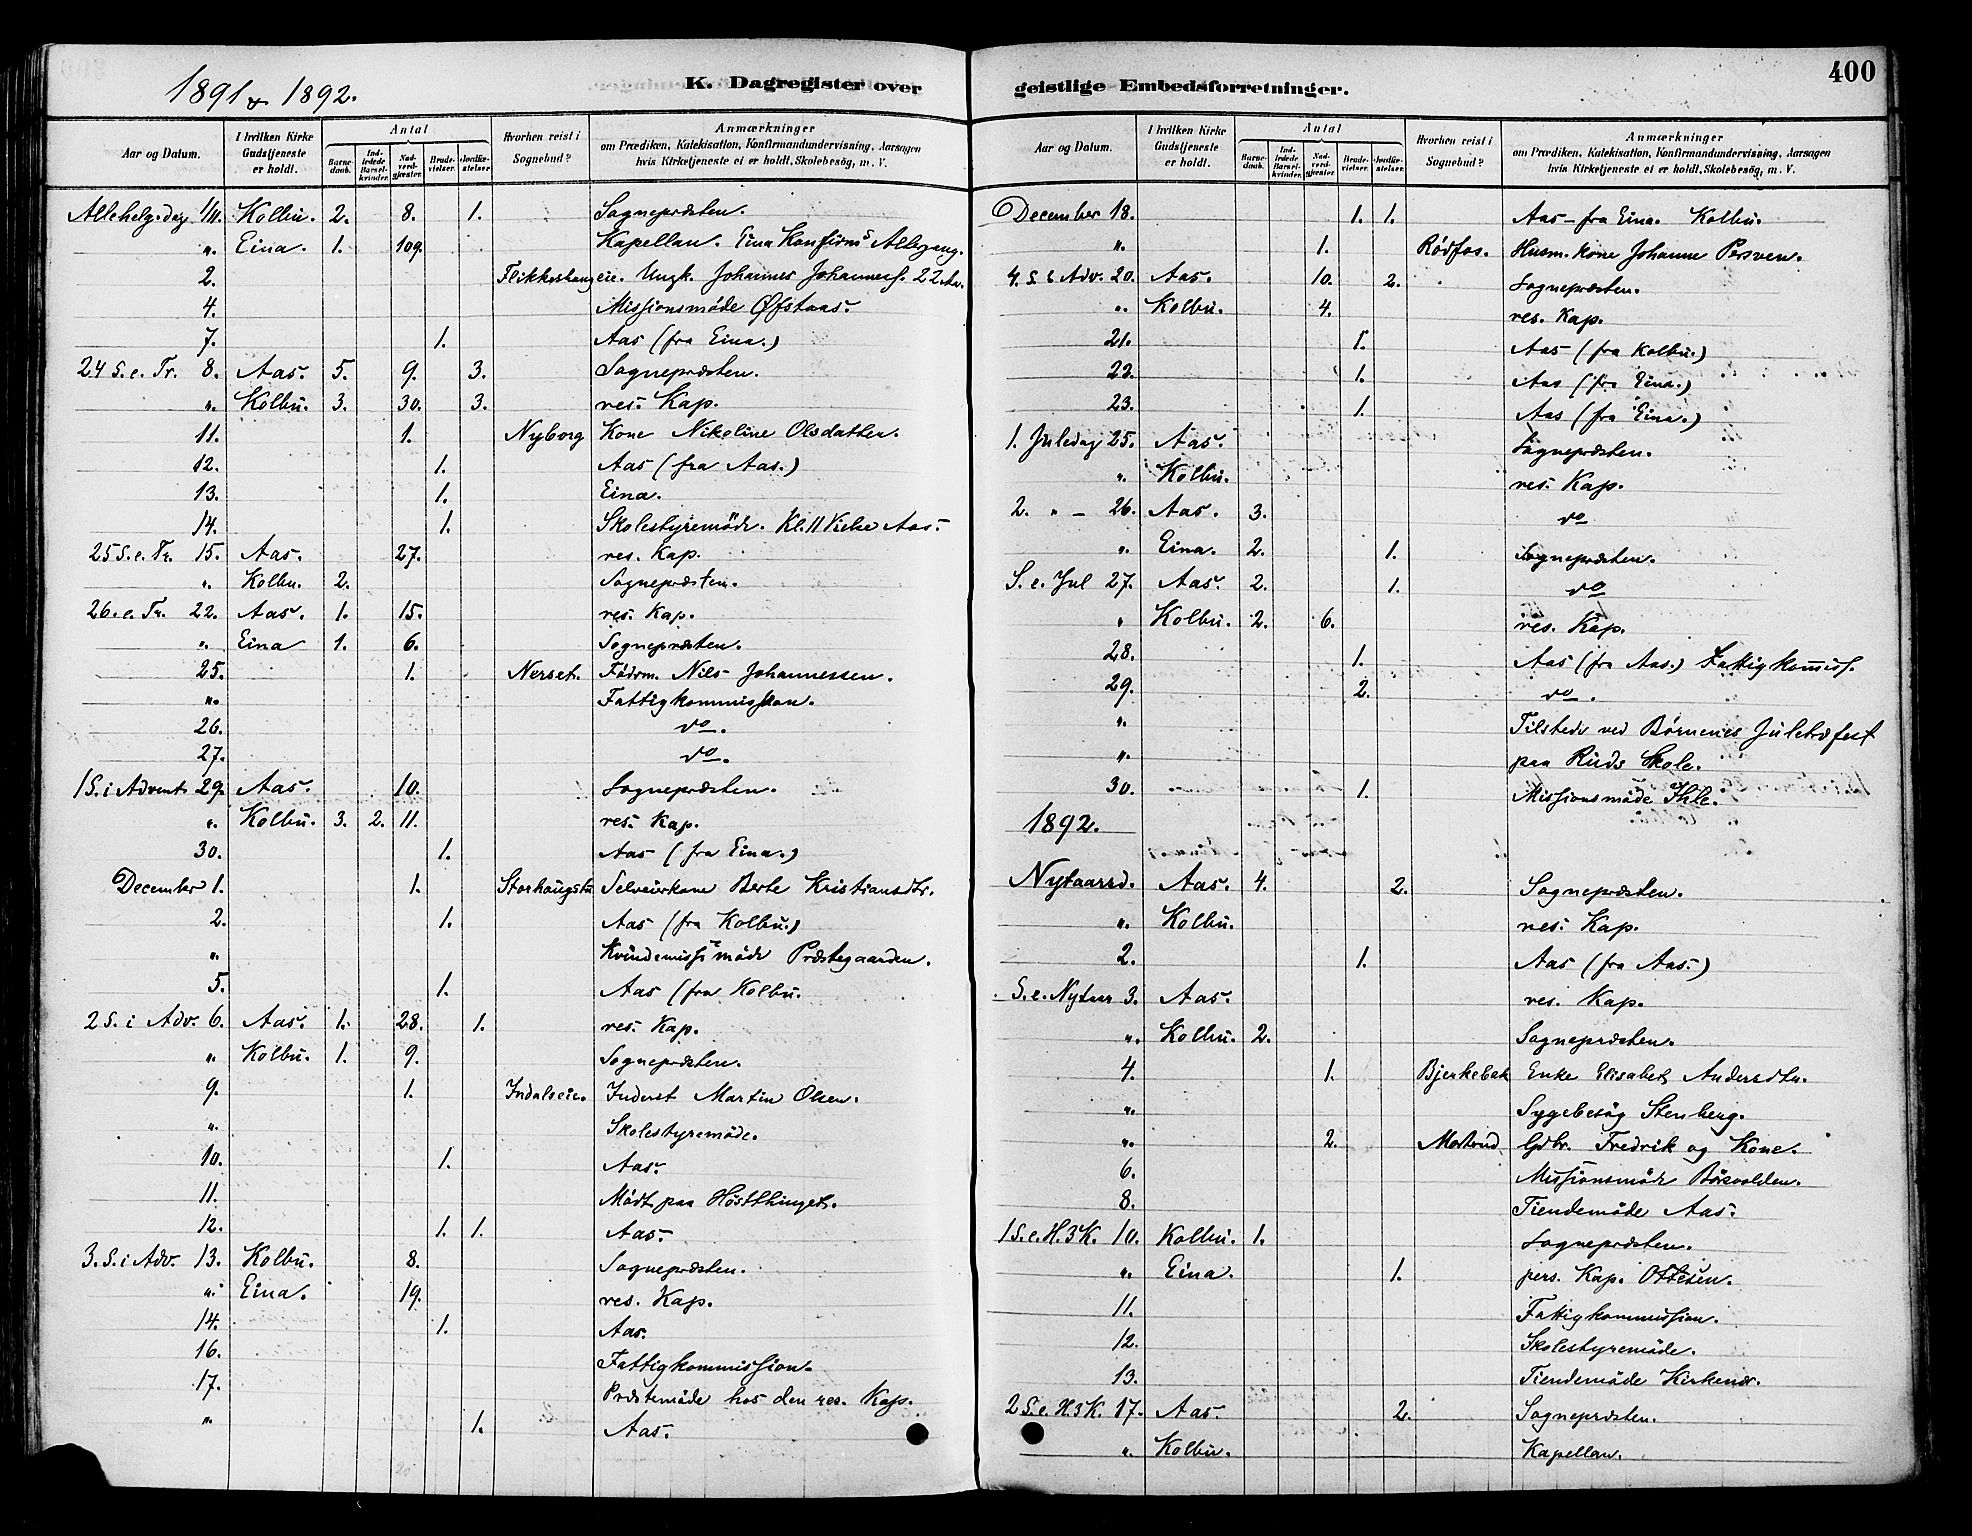 1891 & 1892.
K. Dagregister over
Aar og Datum. I hvilken Kirke Gudstjeneste er holdt. Antal Barnedaab. Indledede Barselkvinder. Nadverdgjæster. Brudevielser. Jordfæstelser. Hvorhen reist i Sognebud? Anmærkninger om Prædiken, Katekisation, Konfirmandundervisning, Aarsagen hvis Kirketjeneste ei er holdt, Skolebesøg, m. V.
Allehelg.dag 1/11. Kolbu. 2. 8. 1. Sognepræsten.
". Eina. 1. 109. Kapellan. Eina Konfirm^s Altergang.
2. Flikkeshaugeie. Ungk. Johannes Johanness. 22 Aar.
4. Missionsmøde Øfstaas.
7. 1. Aas (fra Eina.)
24 S. e. Tr. 8. Aas. 5. 9. 3. Sognepræsten.
". Kolbu. 3. 30. 3. res. Kap.
11. 1. Nyborg Kone Nikoline Olsdatter.
12. 1. Aas (fra Aas.)
13. 1. Eina.
14. 1. Skolestyremöde. Kl. 11 Vielse Aas.
25 S. e. Tr. 15. Aas. 27. res. Kap.
". Kolbu. 2. Sognepræsten.
26. e. Tr. 22. Aas. 1. 15. res. Kap.
". Eina 1. 6. Sognepræsten.
25. 1. Nerset. Födrm. Nils Johannessen.
". Fattigkommission.
26. do.
27. do.
1 S. i Advent 29. Aas. 10. Sognepræsten.
". Kolbu. 3. 2. 11. res. Kap.
30. 1. Aas (fra Eina.)
December 1. 1. Selveierkone Berte Kristiansdtr.
2. 1. Aas (fra Kolbu.)
". Kvindemiss^s möde Præstegaarden.
5. 1. Aas (fra Kolbu.
2 S. i Adv. 6. Aas. 1. 28. 1. res. Kap.
". Kolbu. 1. 9. Sognepræsten.
9. 1. Indalseie. Inderst Martin Olsen.
". Skolestyremöde.
10. 1. Aas.
11. Mödt paa Hösthinget.
12. 1. 1. Aas.
3. S. i Adv. 13. Kolbu. 8. Sognepræsten.
". Eina. 19. res. Kap.
14. 1. Aas.
16. Fattigkommission.
17. Præstemöde hos den res. Kap.
" 1. Aas.
geistlige Embedsforretninger. 400
Aar og Datum. I hvilken Kirke Gudstjeneste er holdt. Antal Barnedaab. Indledede Barselkvinder. Nadverdgjæster. Brudevielser. Jordfæstelser. Hvorhen reist i Sognebud? Anmærkninger om Prædiken, Katekisation, Konfirmandundervisning, Aarsagen hvis Kirketjeneste ei er holdt, Skolebesøg, m. V.
December 18. 1. 1. Aas – fra Eina. Kolbu.
". 1. Rødfos. Husm. kone Johanne Persven.
4. S. i Adv. 20. Aas. 10. 2. Sognepræsten.
". Kolbu. 4. res. Kap.
21. 1. Aas (fra Kolbu.)
22. 1. Aas (fra Eina.)
23. 1. Aas (fra Eina.)
1. Juledag 25. Aas. Sognepræsten.
". Kolbu. res. Kap.
2. " – 26. Aas. 3. do
". Eina. 2. 1. Sognepræsten.
S. e. Jul 27. Aas. 2. 1. do
" Kolbu. 2. 6. res. Kap.
28. 1. Aas (fra Aas.) Fattigkomiss.
29. 2. do.
". Tilstede ved Börnenes Juletræfest
". paa Ruds Skole.
30. 1. Missionsmøde Ihle.
1892.
Nytaarsd. Aas. 4. 2. Sognepræsten.
". Kolbu. res. Kap.
2. 1. Aas (fra Aas.)
S. e. Nytaar 3. Aas. res. Kap.
". Kolbu. 2. Sognepræsten.
4. 1. Bjerkebak Enke Elisabet Andersdtr.
". Sygebesög Stenberg.
". 2. Gdbr. Fredrik og Kone.
6. Missionsmöde Börsvolden.
8. Tiendemöde Aas.
1 S. e. H. 3 K. 10. Kolbu. 1. Sognepræsten.
". Eina. 1. pers. Kap. Ottesen.
11. Fattigkommission.
12. Skolestyremöde.
13. Tiendemöde Kirkener.
2 S. e. H. 3 K. 17. Aas. 2. Sognepræsten.
". Kolbu. Kapellan.